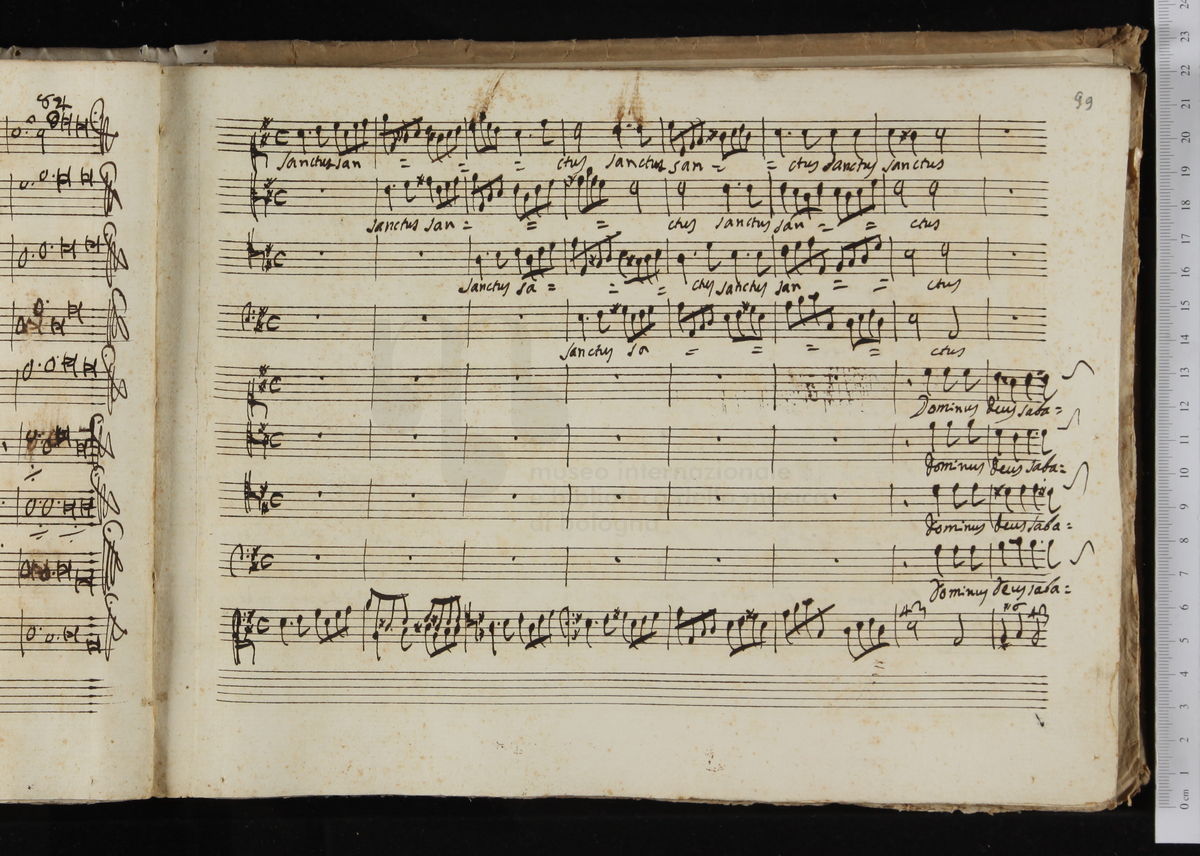 82
99
Sanctus san = = = ctus Sanctus san = = ctus Sanctus Sanctus
Sanctus san = = = ctus Sanctus san = = ctus
Sanctus sa = = = ctus Sanctus san = = ctus
Sanctus sa = = = = ctus
Dominus deus saba=
dominus deus saba=
dominus deus saba=
dominus deus saba=
museo internazionale
di bologna
0 cm 1 2 3 4 5 6 7 8 9 10 11 12 13 14 15 16 17 18 19 20 21 22 23 24